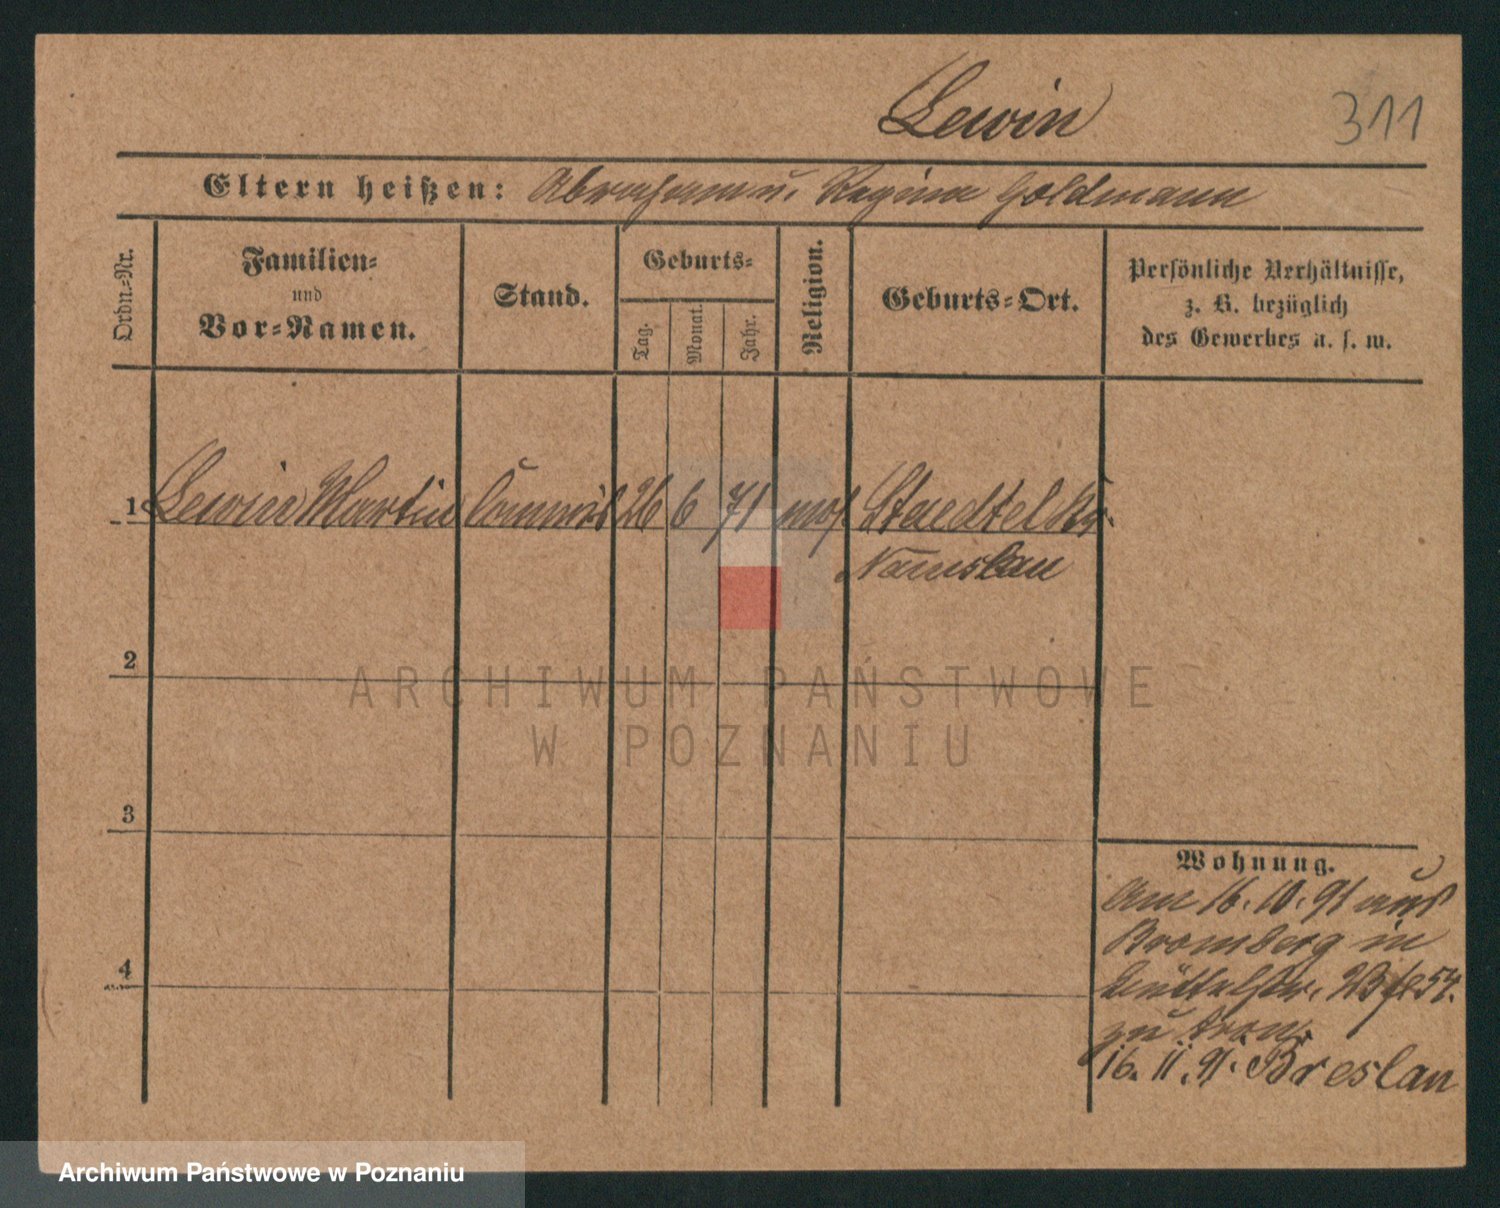 Lewin
311
Eltern heißen: Abraham u. Regina Goldmann
Ordn.-Nr.
Familien-
und
Vor-Namen.
Stand.
Geburts-
Tag.
Monat.
Jahr.
Religion.
Geburts-Ort.
Persönliche Verhältnisse,
z. B. bezüglich
des Gewerbes u. s. w.
1 Lewin Martin Commis 26 6 71 mos. Staedtel Kr.
Namslau
2
ARCHIWUM PAŃSTWOWE
W POZNANIU
3
Wohnung.
Am 16. 10. 91 aus
Bromberg in
4
54.
zu
16. 11. 91. Breslau
Archiwum Państwowe w Poznaniu